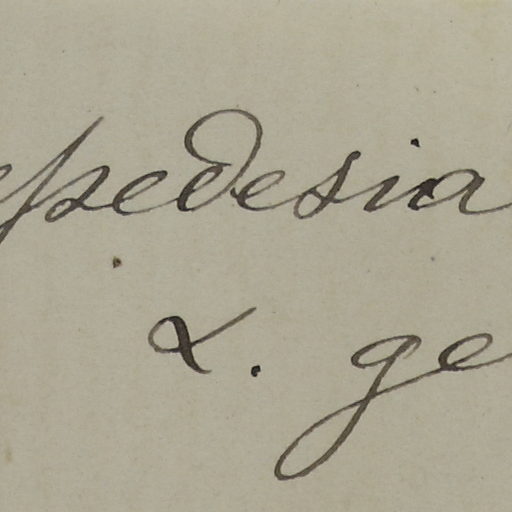 epedesia
α. ge